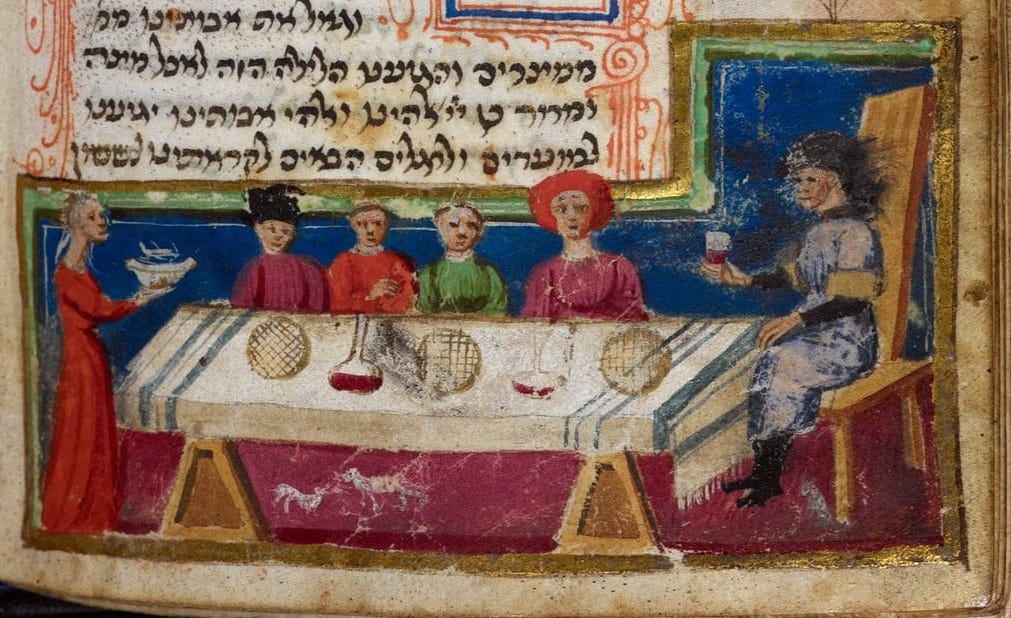 וגאל את אבותינו ממ
ממצרים והגיענו הלילה הזה לאכל מצה
ומרור כן ייי אלהינו ואלהי אבותינו יגיענו
למועדים ולרגלים הבאים לקראתינו לששון